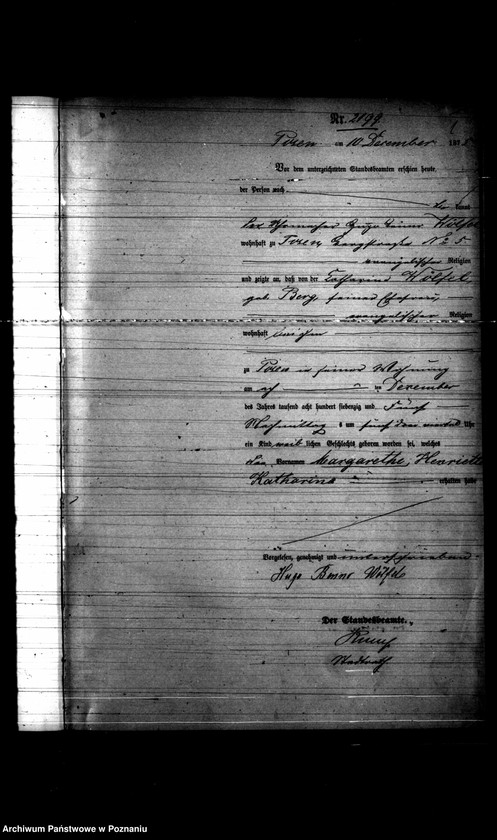 Nr. 2199
Posen am 10 Dezember 1875
Vor dem unterzeichneten Standesbeamten erschien heute,
der Person nach
kannt,
Hugo Benno Wölfel
wohnhaft zu Posen, Bergstraße No 5
evangelischer Religion
und zeigte an, daß von der Catharina Wölfel,
geb. Berg seiner Ehefrau,
evangelischer Religion
wohnhaft
zu Posen in seiner Wohnung
am acht ten Dezember
des Jahres tausend acht hundert siebenzig und Fünf
Nachmittag s um fünf drei viertel Uhr
ein Kind weib lichen Geschlechts geboren worden sei, welches
Vornamen Margarethe, Henriette
Katharina erhalten habe
Vorgelesen, genehmigt und unterschrieben
Hugo Benno Wölfel
Der Standesbeamte.
Stadtrath
Archiwum Państwowe w Poznaniu